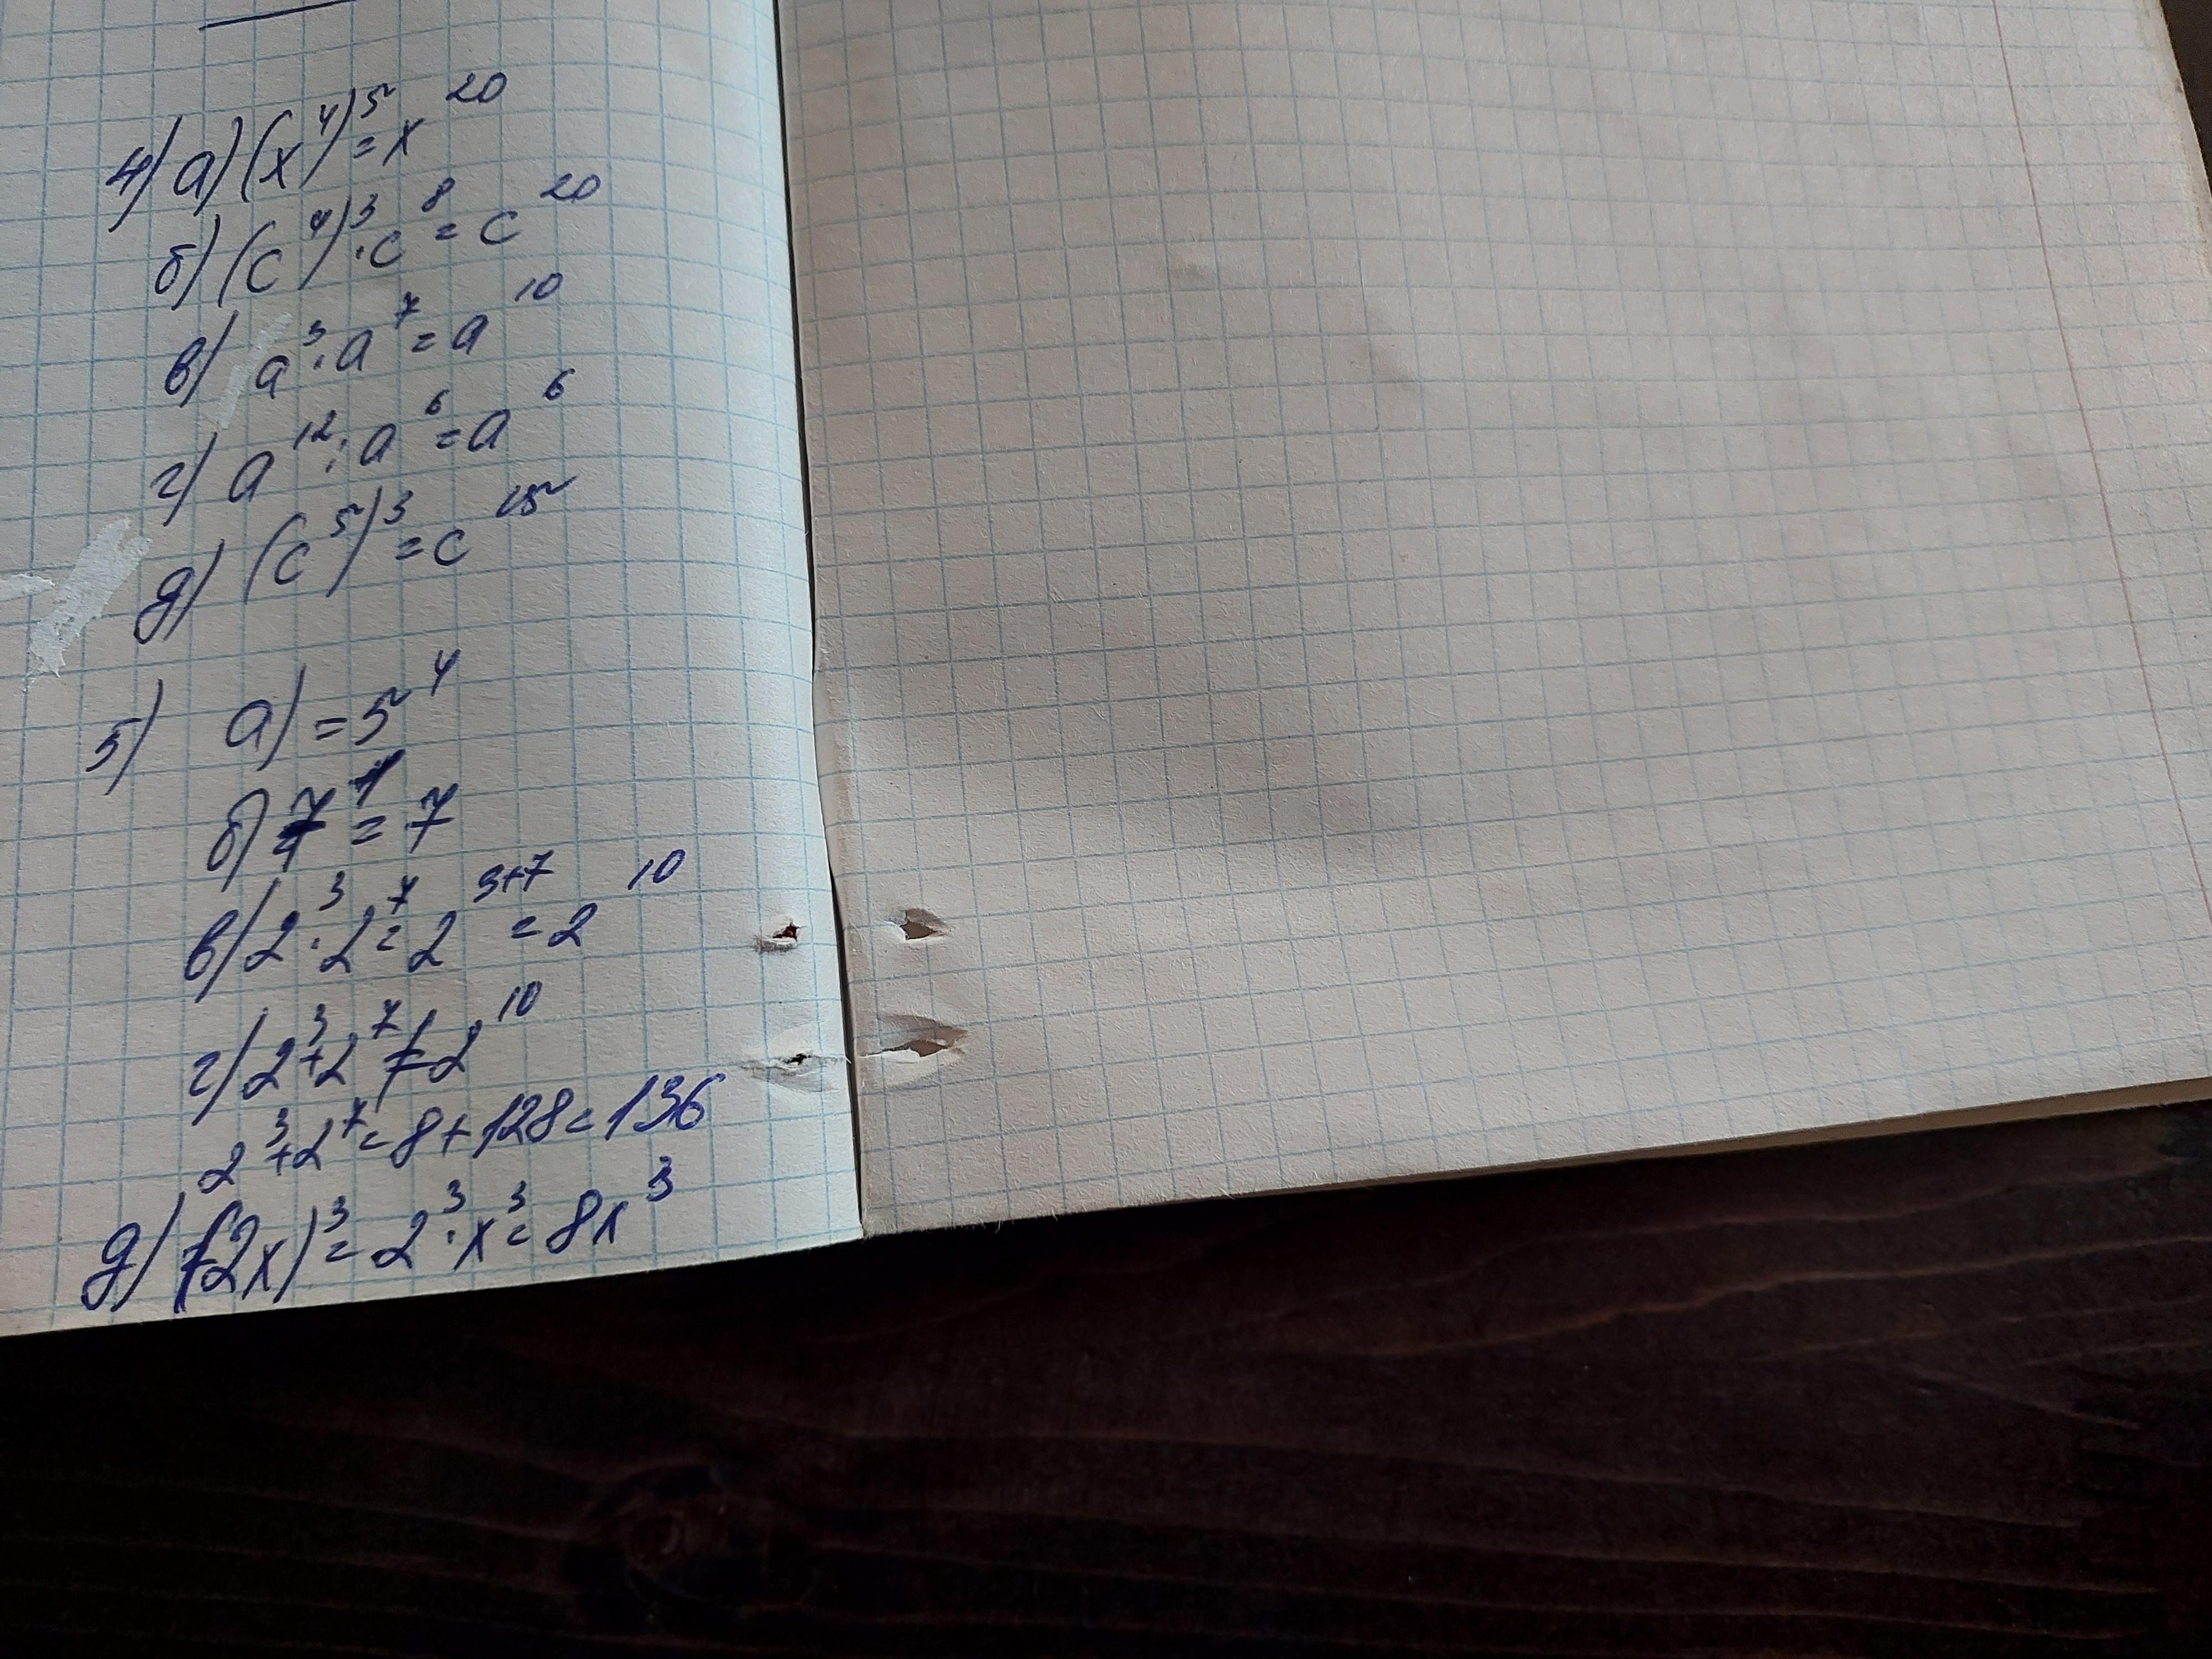 4) а) (x⁴)⁵ = x²⁰
б) (c⁴)³ · c⁸ = c²⁰
в) a³ · a⁷ = a¹⁰
г) a¹² : a⁶ = a⁶
д) (c⁵)³ = c¹⁵
5) а) = 5⁴
б) 7¹ = 7
в) 2³ · 2⁷ = 2³⁺⁷ = 2¹⁰
г) 2³ + 2⁷ ≠ 2¹⁰
2³ + 2⁷ = 8 + 128 = 136
д) (2x)³ = 2³ · x³ = 8x³